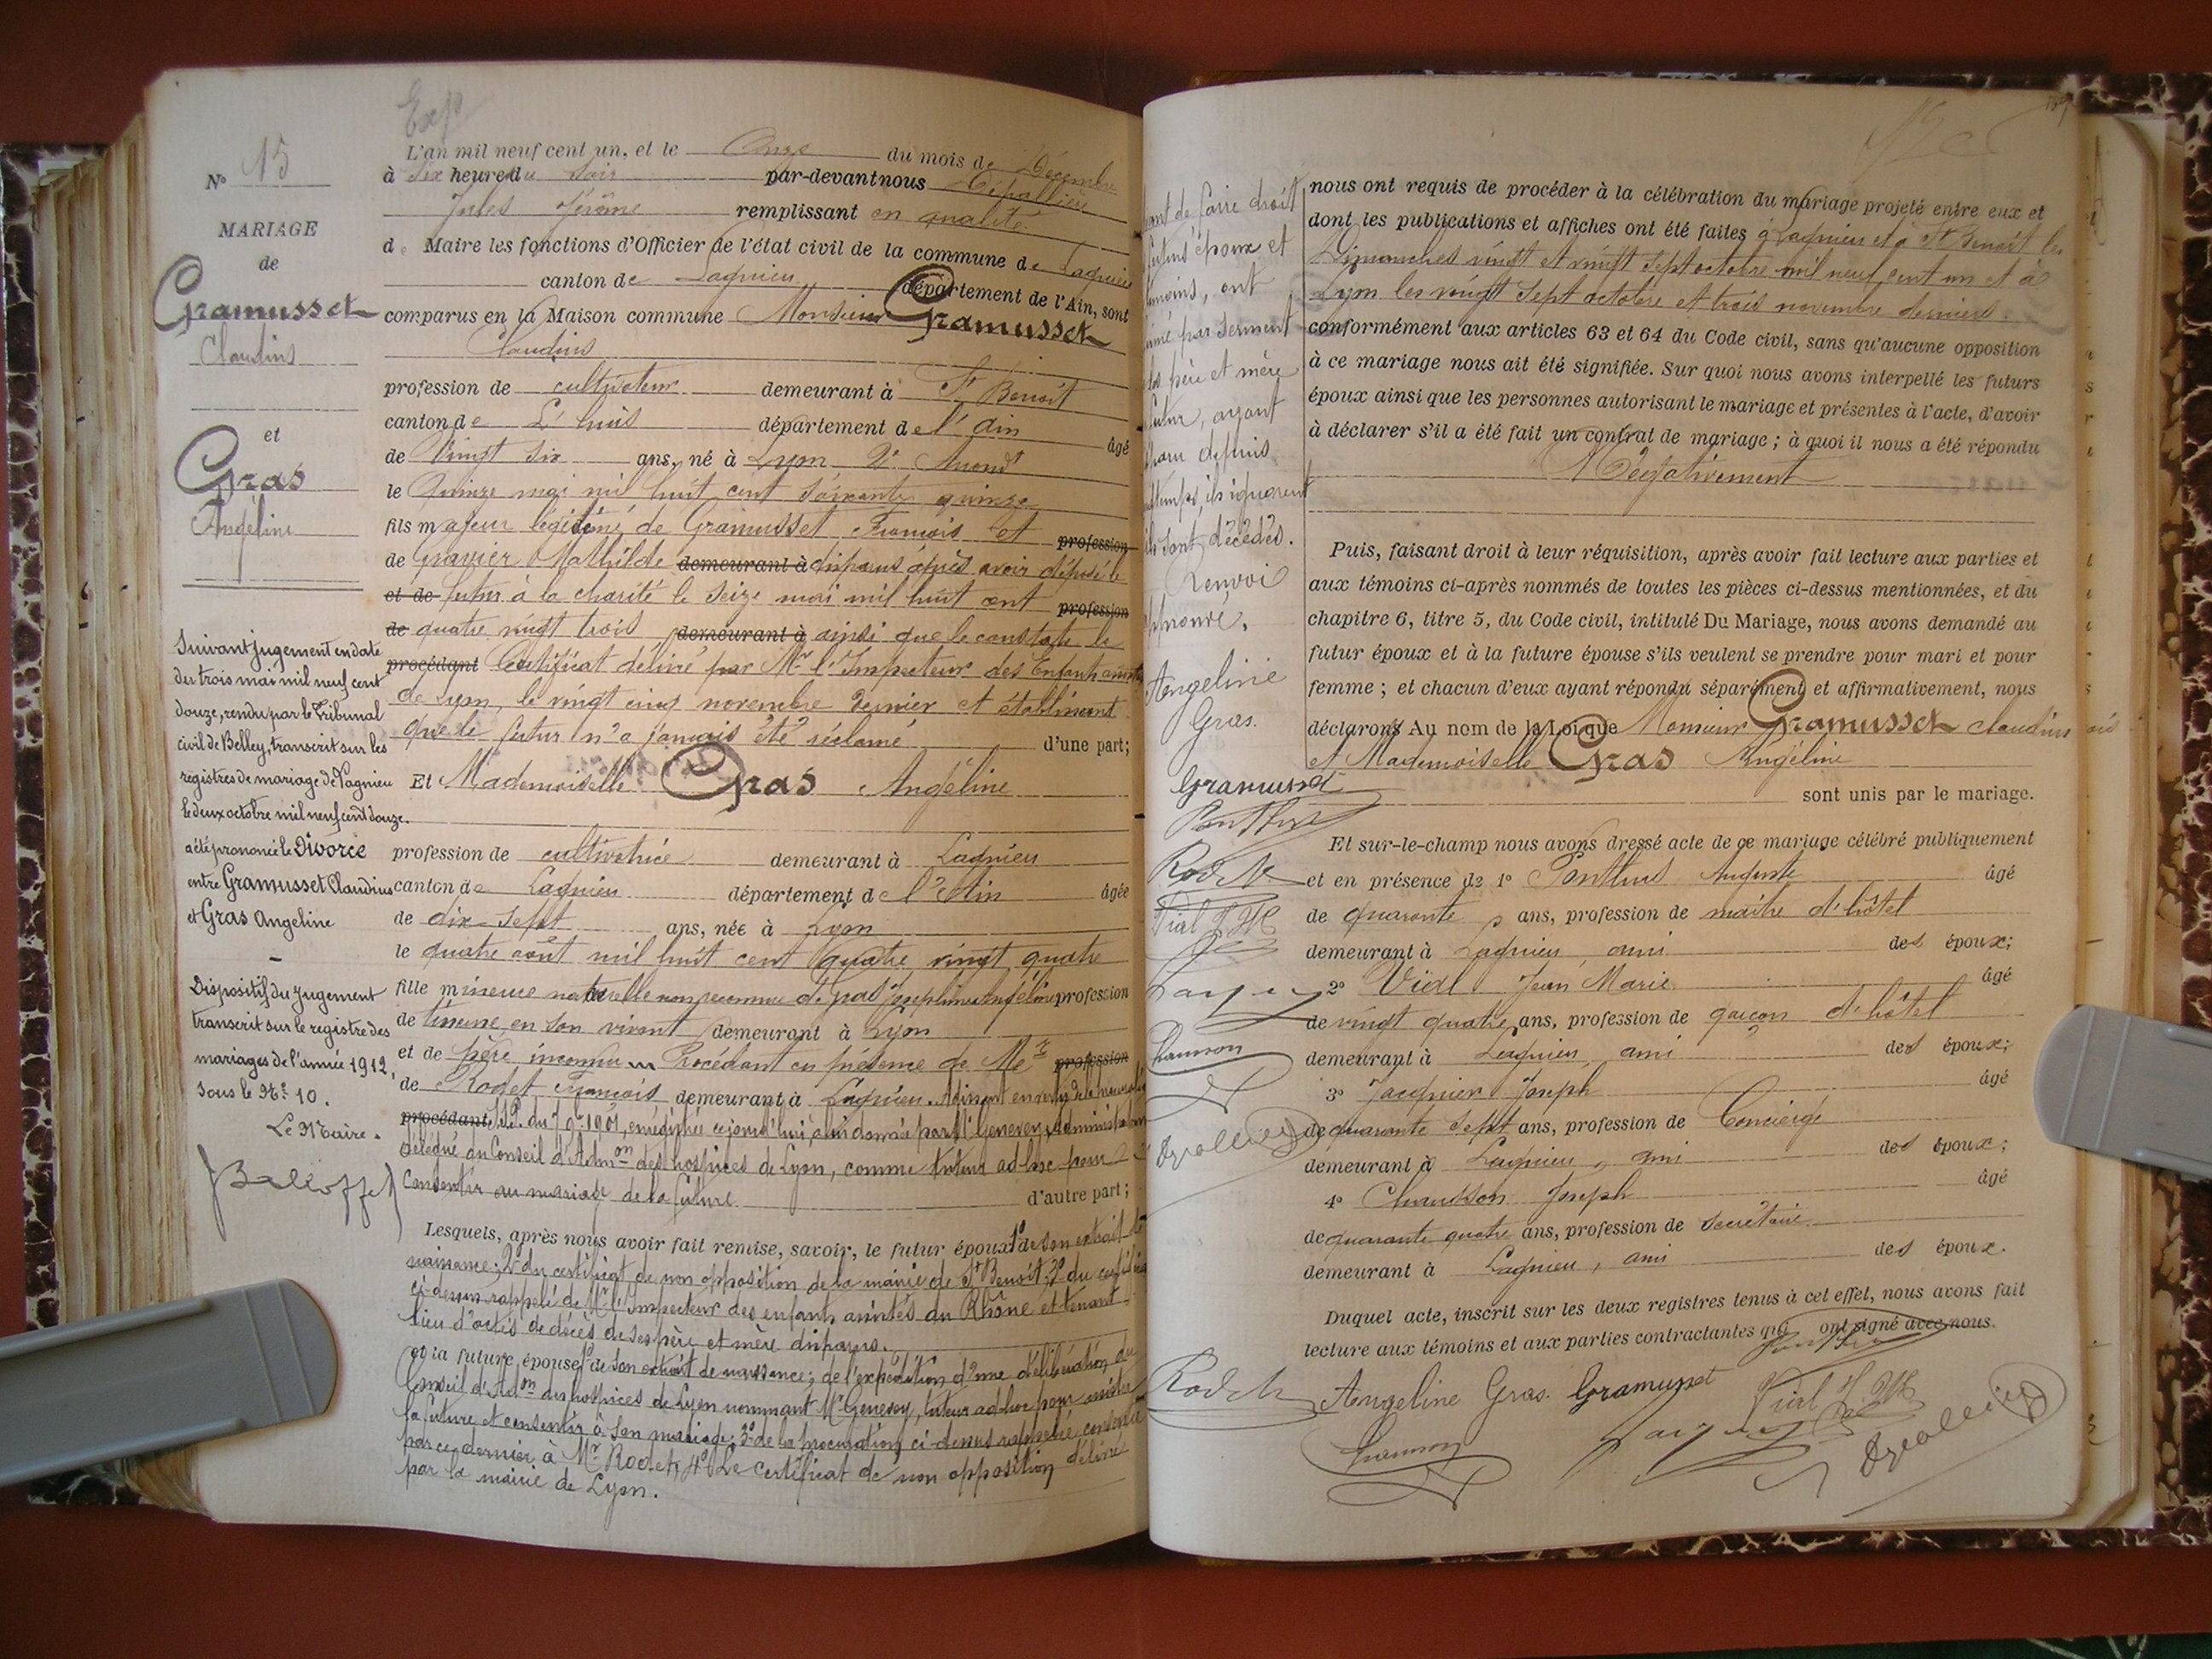 Exp
N° 15
MARIAGE
de
Gramusset
Claudius
et
Gras
Angéline
Suivant jugement en date
du trois mai mil neuf cent
douze, rendu par le Tribunal
civil de Belley, transcrit sur les
registres de mariage de Lagnieu
le deux octobre mil neuf cent douze.
a été prononcé le Divorce
entre Gramusset Claudius
et Gras Angeline
Dispositif du jugement
transcrit sur le registre des
mariages de l'année 1912,
sous le No 10.
Le Maire.
L'an mil neuf cent un, et le Onze du mois de Décembre
à Six heure du soir par-devant nous Dépallière
Jules Jérôme remplissant en qualité
de Maire les fonctions d'Officier de l'état civil de la commune de Lagnieu
canton de Lagnieu département de l'Ain, sont
comparus en la Maison commune Monsieur Gramusset
Claudius
profession de cultivateur demeurant à St Benoit
canton de L'huis département de l'Ain âgé
de Vingt six ans, né à Lyon 2e Arrondt
le Quinze mai mil huit cent soixante quinze
fils majeur légitime de Gramusset François et profession
de Gravier Mathilde demeurant à disparus après avoir déposé le
et de futur à la charité le seize mai mil huit cent profession
de quatre vingt trois demeurant à ainsi que le constate le
procédant Certificat délivré par Mr l'Inspecteur des Enfants assistés
de Lyon, le vingt cinq novembre dernier et établissant
que le futur n'a jamais été réclamé d'une part;
Et Mademoiselle Gras Angéline
profession de cultivatrice demeurant à Lagnieu
canton de Lagnieu département de l'Ain âgée
de dix-sept ans, née à Lyon
le quatre août mil huit cent quatre vingt quatre
fille mineure naturelle non reconnue de Gras Joséphine profession
de tisseuse, en son vivant demeurant à Lyon
et de père inconnu Procédant en présence de Me profession
de Rodet François demeurant à Lagnieu.
procédant du 7 1901, enregistrée ce jourd'hui, à lui donnée par Mr Genevey, Administrateur
délégué du Conseil d'Admon des hospices de Lyon, comme tuteur ad-hoc pour
Consentir au mariage de la future d'autre part;
Lesquels, après nous avoir fait remise, savoir, le futur époux 1° de son extrait de
naissance; 2° du certificat de non opposition de la mairie de St Benoit; 3° du certificat
ci-dessus rappelé de Mr l'Inspecteur des enfants assistés du Rhône et tenant
lieu d'actes de décès de ses père et mère disparus.
et la future épouse 1° de son extrait de naissance; de l'expédition d'une délibération du
Conseil d'Adon des hospices de Lyon nommant Mr Genevey, tuteur ad-hoc pour assister
la future et consentir à son mariage; 3° de la procuration ci-dessus rappelée consentie
par ce dernier à Mr Rodet; 4° Le certificat de non opposition délivré
par la mairie de Lyon.
de faire droit
époux et
témoins, ont
par serment
père et mère
futur, ayant
depuis
ils ignorent
sont décédés.
Renvoi
Angeline
Gras.
Gramusset
Ponthus
Rodet
Vial J M
nous ont requis de procéder à la célébration du mariage projeté entre eux et
dont les publications et affiches ont été faites à Lagnieu et à St Benoit les
Dimanches vingt et vingt sept octobre mil neuf cent un et à
Lyon les vingt sept octobre et trois novembre derniers.
conformément aux articles 63 et 64 du Code civil, sans qu'aucune opposition
à ce mariage nous ait été signifiée. Sur quoi nous avons interpellé les futurs
époux ainsi que les personnes autorisant le mariage et présentes à l'acte, d'avoir
à déclarer s'il a été fait un contrat de mariage; à quoi il nous a été répondu
Négativement
Puis, faisant droit à leur réquisition, après avoir fait lecture aux parties et
aux témoins ci-après nommés de toutes les pièces ci-dessus mentionnées, et du
chapitre 6, titre 5, du Code civil, intitulé Du Mariage, nous avons demandé au
futur époux et à la future épouse s'ils veulent se prendre pour mari et pour
femme; et chacun d'eux ayant répondu séparément et affirmativement, nous
déclarons Au nom de la Loi que Monsieur Gramusset Claudius
et Mademoiselle Gras Angéline
sont unis par le mariage.
Et sur-le-champ nous avons dressé acte de ce mariage célébré publiquement
et en présence de 1° Ponthus Auguste âgé
de quarante ans, profession de maître d'hôtel
demeurant à Lagnieu, ami des époux;
2° Vial Jean Marie âgé
de vingt quatre ans, profession de garçon d'hôtel
demeurant à Lagnieu, ami des époux;
3° Jacquier Joseph âgé
de quarante sept ans, profession de Concierge
demeurant à Lagnieu, ami des époux;
4° Chanusson Joseph âgé
de quarante quatre ans, profession de secrétaire
demeurant à Lagnieu, ami des époux.
Duquel acte, inscrit sur les deux registres tenus à cet effet, nous avons fait
lecture aux témoins et aux parties contractantes qui ont signé avec nous.
Rodet Angeline Gras. Gramusset Vial J M